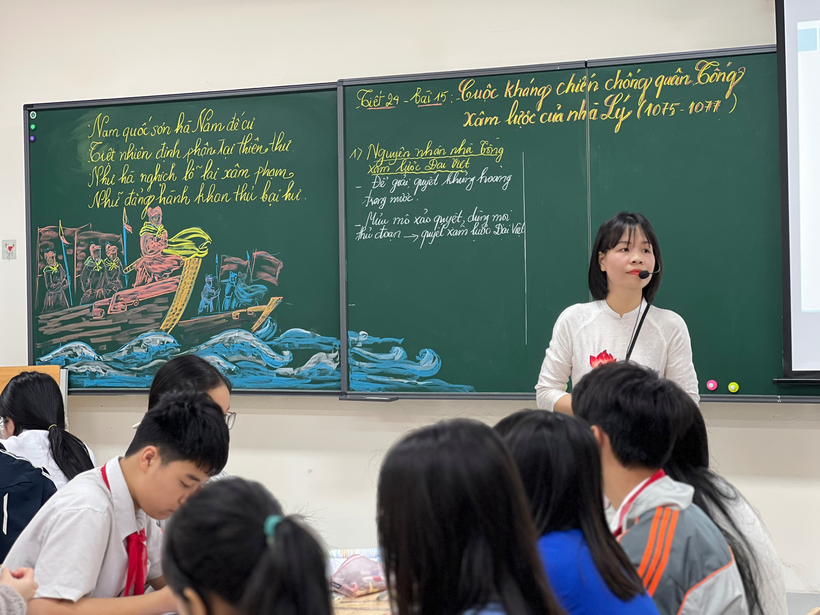 Nam quốc sơn hà Nam đế cư
Tiệt nhiên định phận tại thiên thư
Như hà nghịch lỗ lai xâm phạm
Nhữ đẳng hành khan thủ bại hư.
Tiết 24 - bài 15: Cuộc kháng chiến chống quân Tống
xâm lược của nhà Lý (1075-1077)
1) Nguyên nhân nhà Tống
xâm lược Đại Việt
- Để giải quyết khủng hoảng
trong nước.
- Mưu mô xảo quyệt, dùng mọi
thủ đoạn → quyết xâm lược Đại Việt